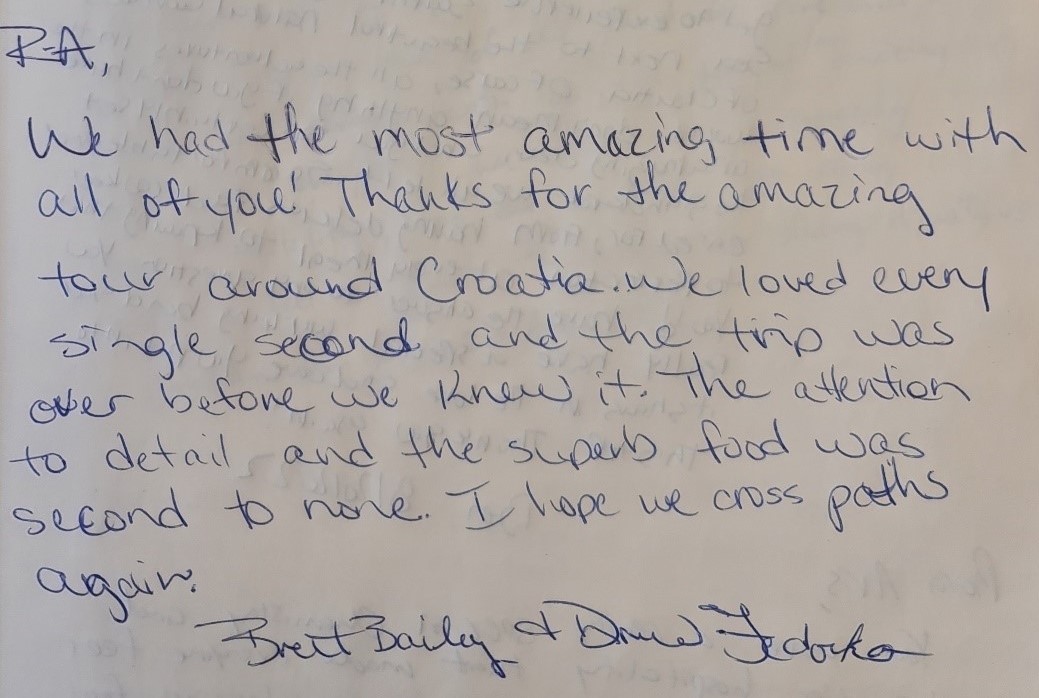 R-A,
We had the most amazing time with
all of you! Thanks for the amazing
tour around Croatia. We loved every
single second and the trip was
over before we knew it. The attention
to detail and the superb food was
second to none. I hope we cross paths
again.
Brett Baily & Drew Fedorko